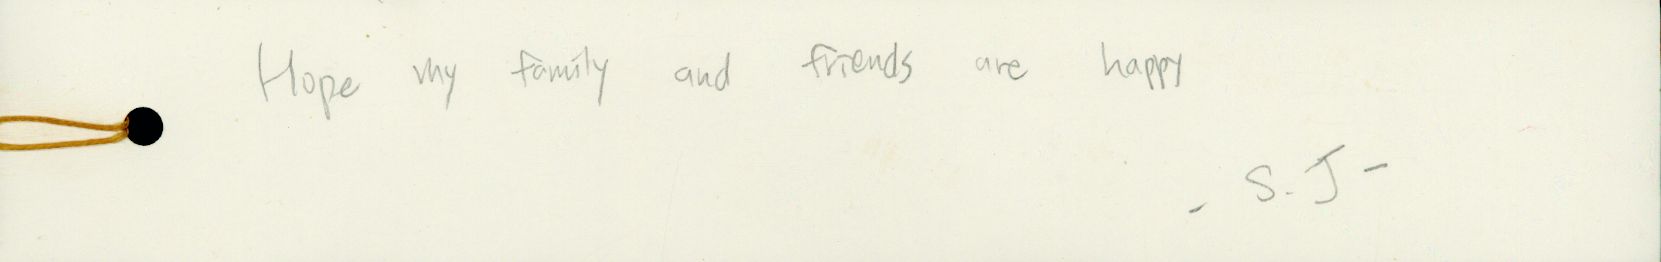 Hope my family and friends are happy
- S.J -